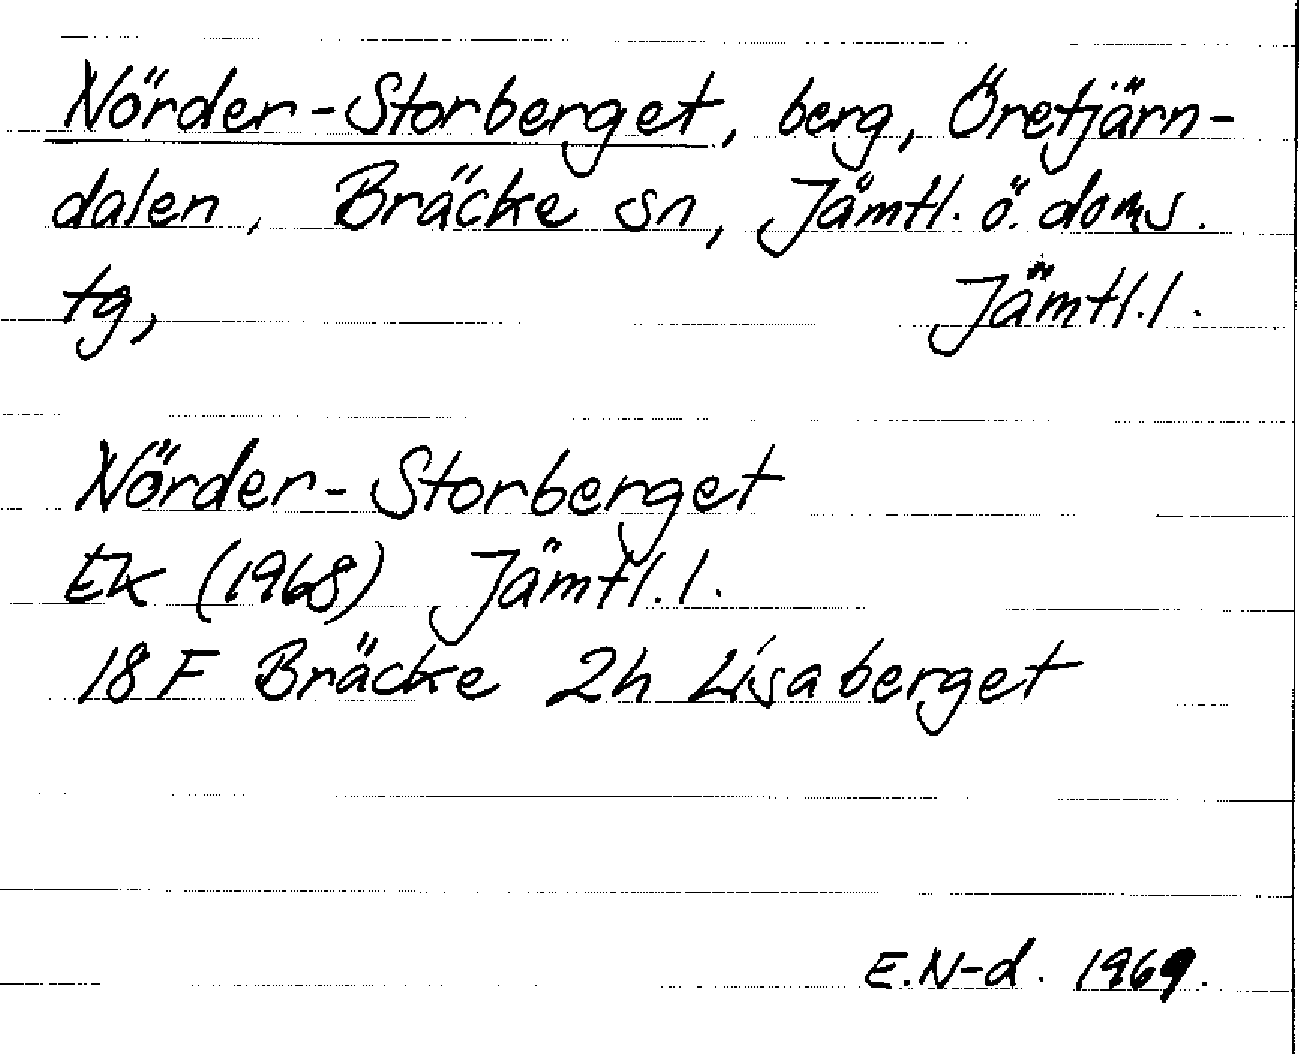 Nörder-Storberget, berg, Öretjärn-
dalen, Bräcke sn, Jämtl. ö. doms.
tg, Jämtl.l.
Nörder-Storberget
EK (1968) Jämtl.l.
18 F Bräcke 2h Lisaberget
E.N-d. 1969.